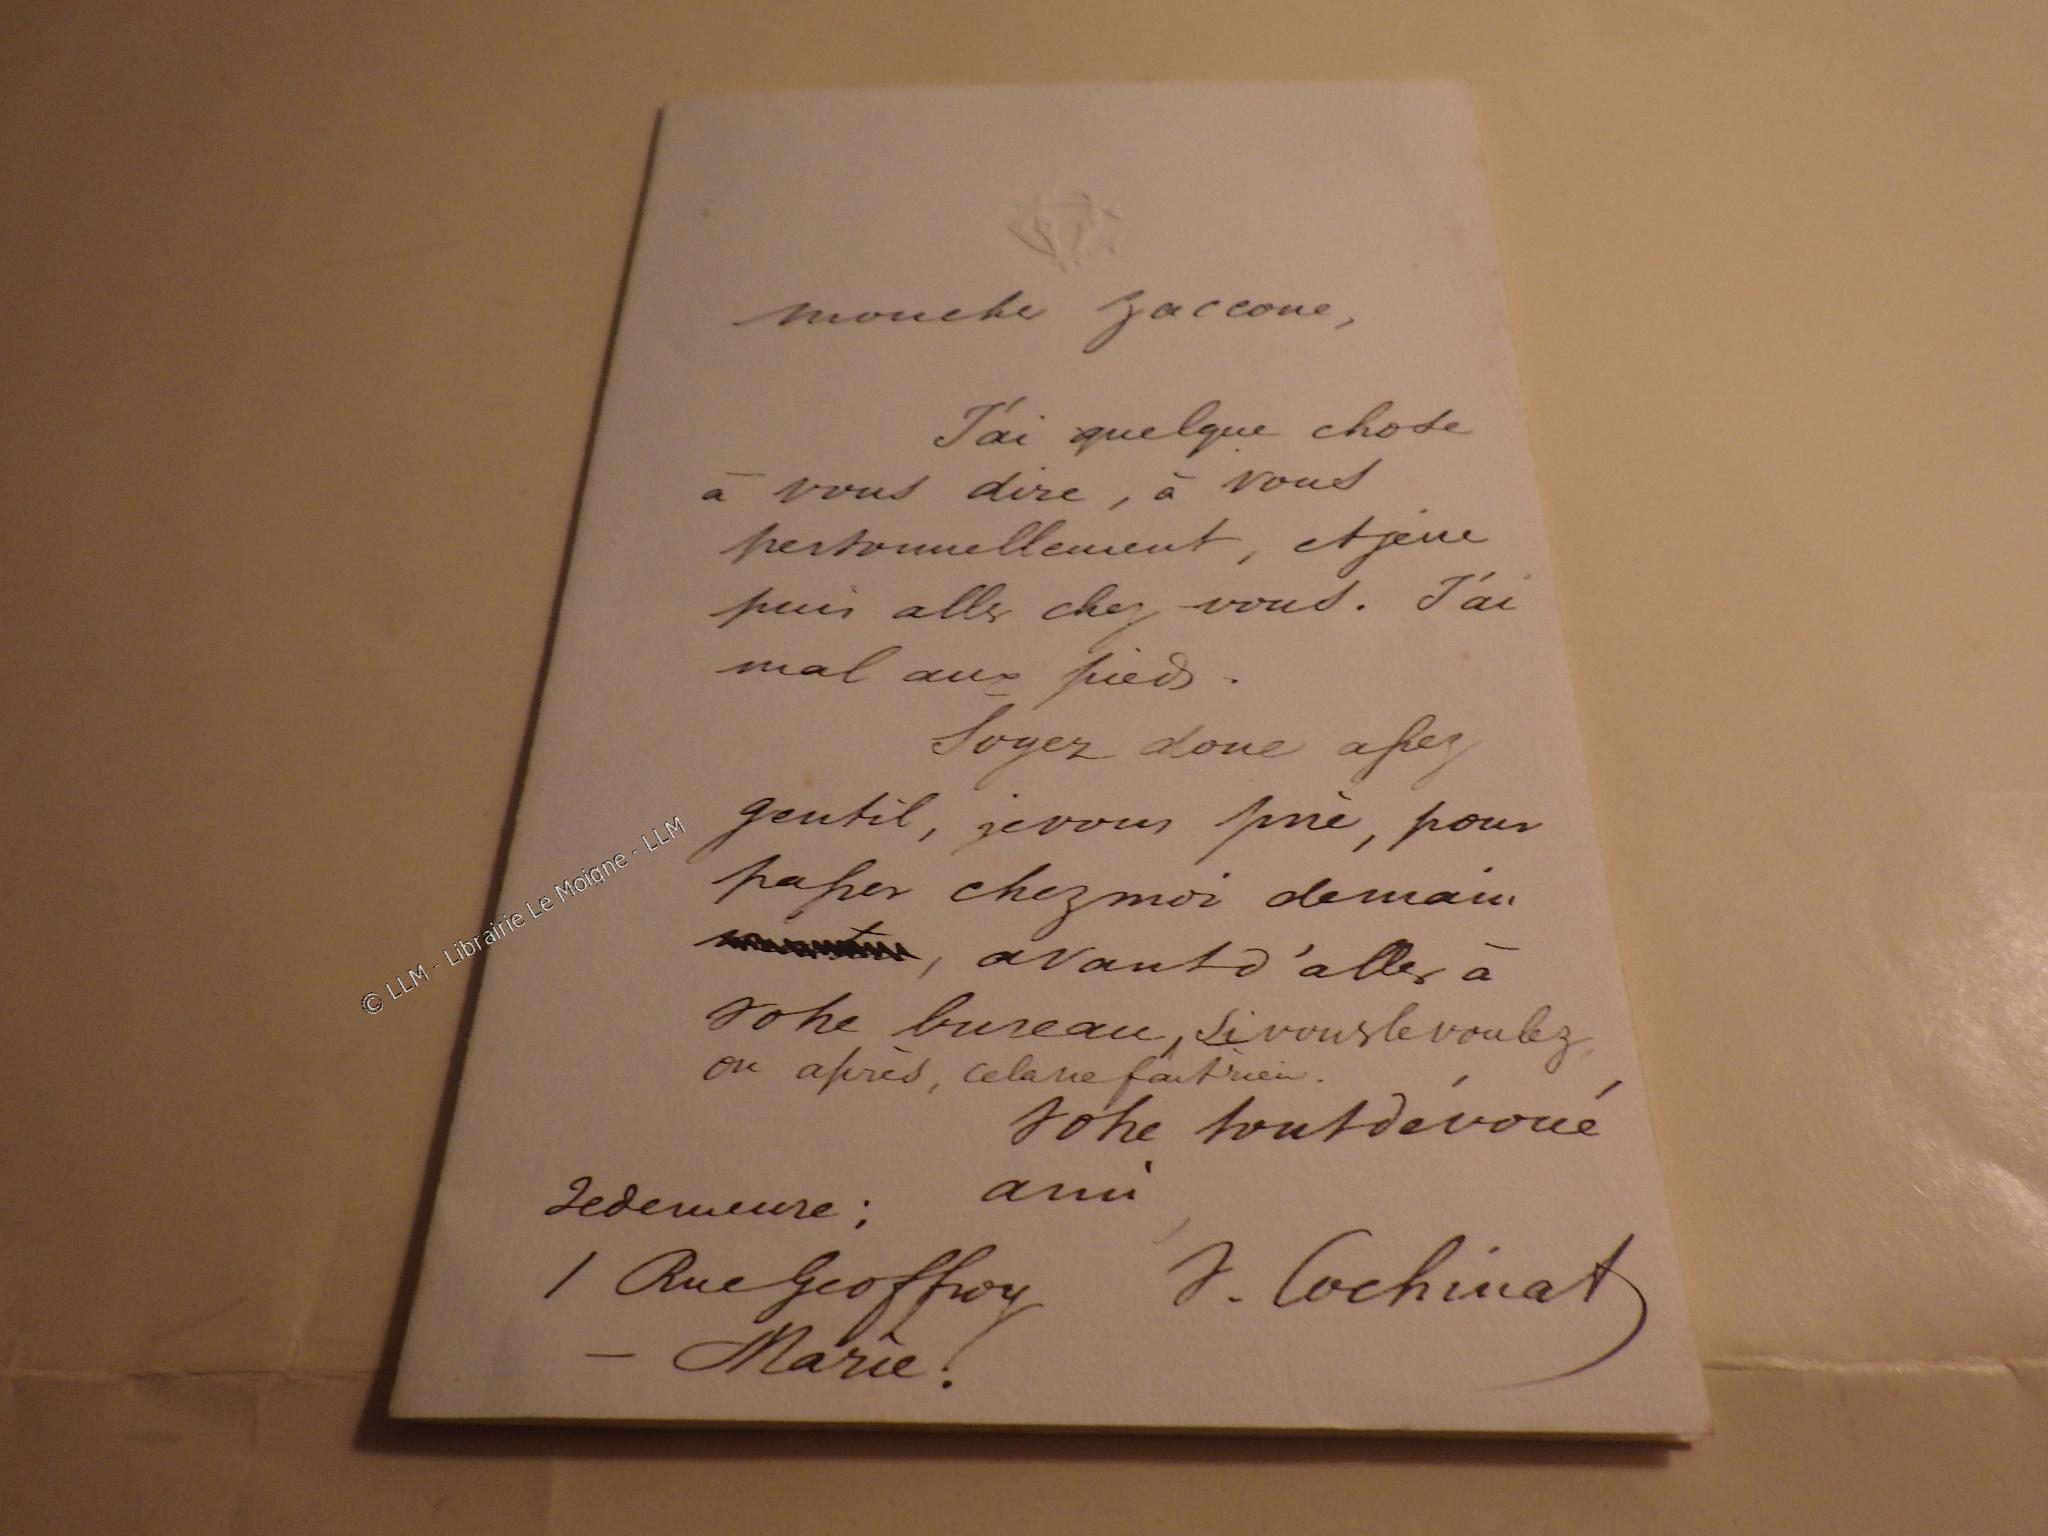 Mon cher Zaccone,
J'ai quelque chose
à vous dire, à vous
personnellement, et je ne
puis aller chez vous. J'ai
mal aux pieds.
Soyez donc assez
gentil, je vous prie, pour
passer chez moi demain
, avant d'aller à
votre bureau, si vous le voulez,
ou après, cela ne fait rien.
Votre tout dévoué
ami
Je demeure :
1 Rue Geoffroy
- Marie.
V. Cochinat
© LLM - Librairie Le Moigne - LLM